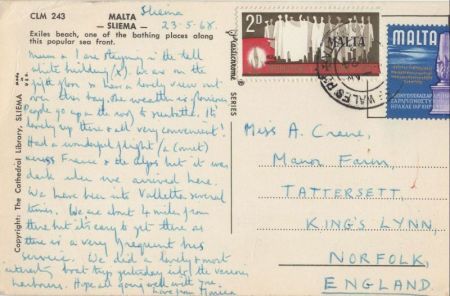 CLM 243 MALTA
— SLIEMA —
Exiles beach, one of the bathing places along
this popular sea front.
Sliema
23-5-68.
Mum & I are staying in the tall
white building (X). We are on the
floor & have a lovely view out
over this bay. The weather is glorious
people go up on the roof to sunbathe. It's
lovely up there & all very convenient!
Had a wonderful flight (a Comet)
across France & the Alps but it was
dark when we arrived here.
We have been into Valletta several
times. We are about 4 miles from
there but it's easy to get there as
there is a very frequent bus
service. We did a lovely & most
interesting boat trip yesterday into the various
harbours. Hope all going well with you.
Love from Monica
Copyright: The Cathedral Library, SLIEMA
Plastichrome
SERIES
2D
MALTA
WALES
MALTA
Miss A. Crane,
Manor Farm,
TATTERSETT,
KING'S LYNN,
NORFOLK,
ENGLAND.